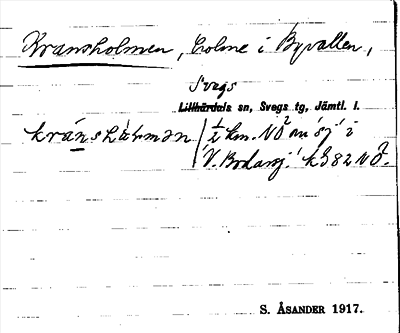 Kransholmen, holme i Byvallen,
Svegs
Lillhärdals sn, Svegs tg, Jämtl. l.
½ km. NO om sj. i
V. Brdarsj. k 382 NO.
S. ÅSANDER 1917.